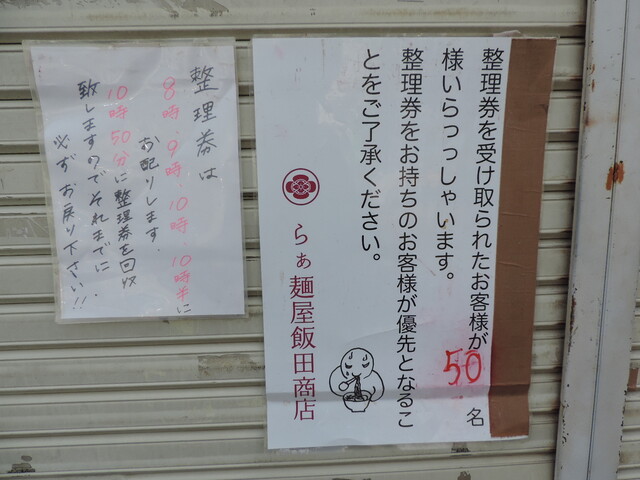 整理券を受け取られたお客様が50名
様いらっっしゃいます。
整理券をお持ちのお客様が優先となるこ
とをご了承ください。
らぁ麺屋飯田商店
整理券は
8時.9時.10時.10時半に
お配りします.
10時50分に整理券を回収
致しますのでそれまでに.
必ずお戻り下さい!!